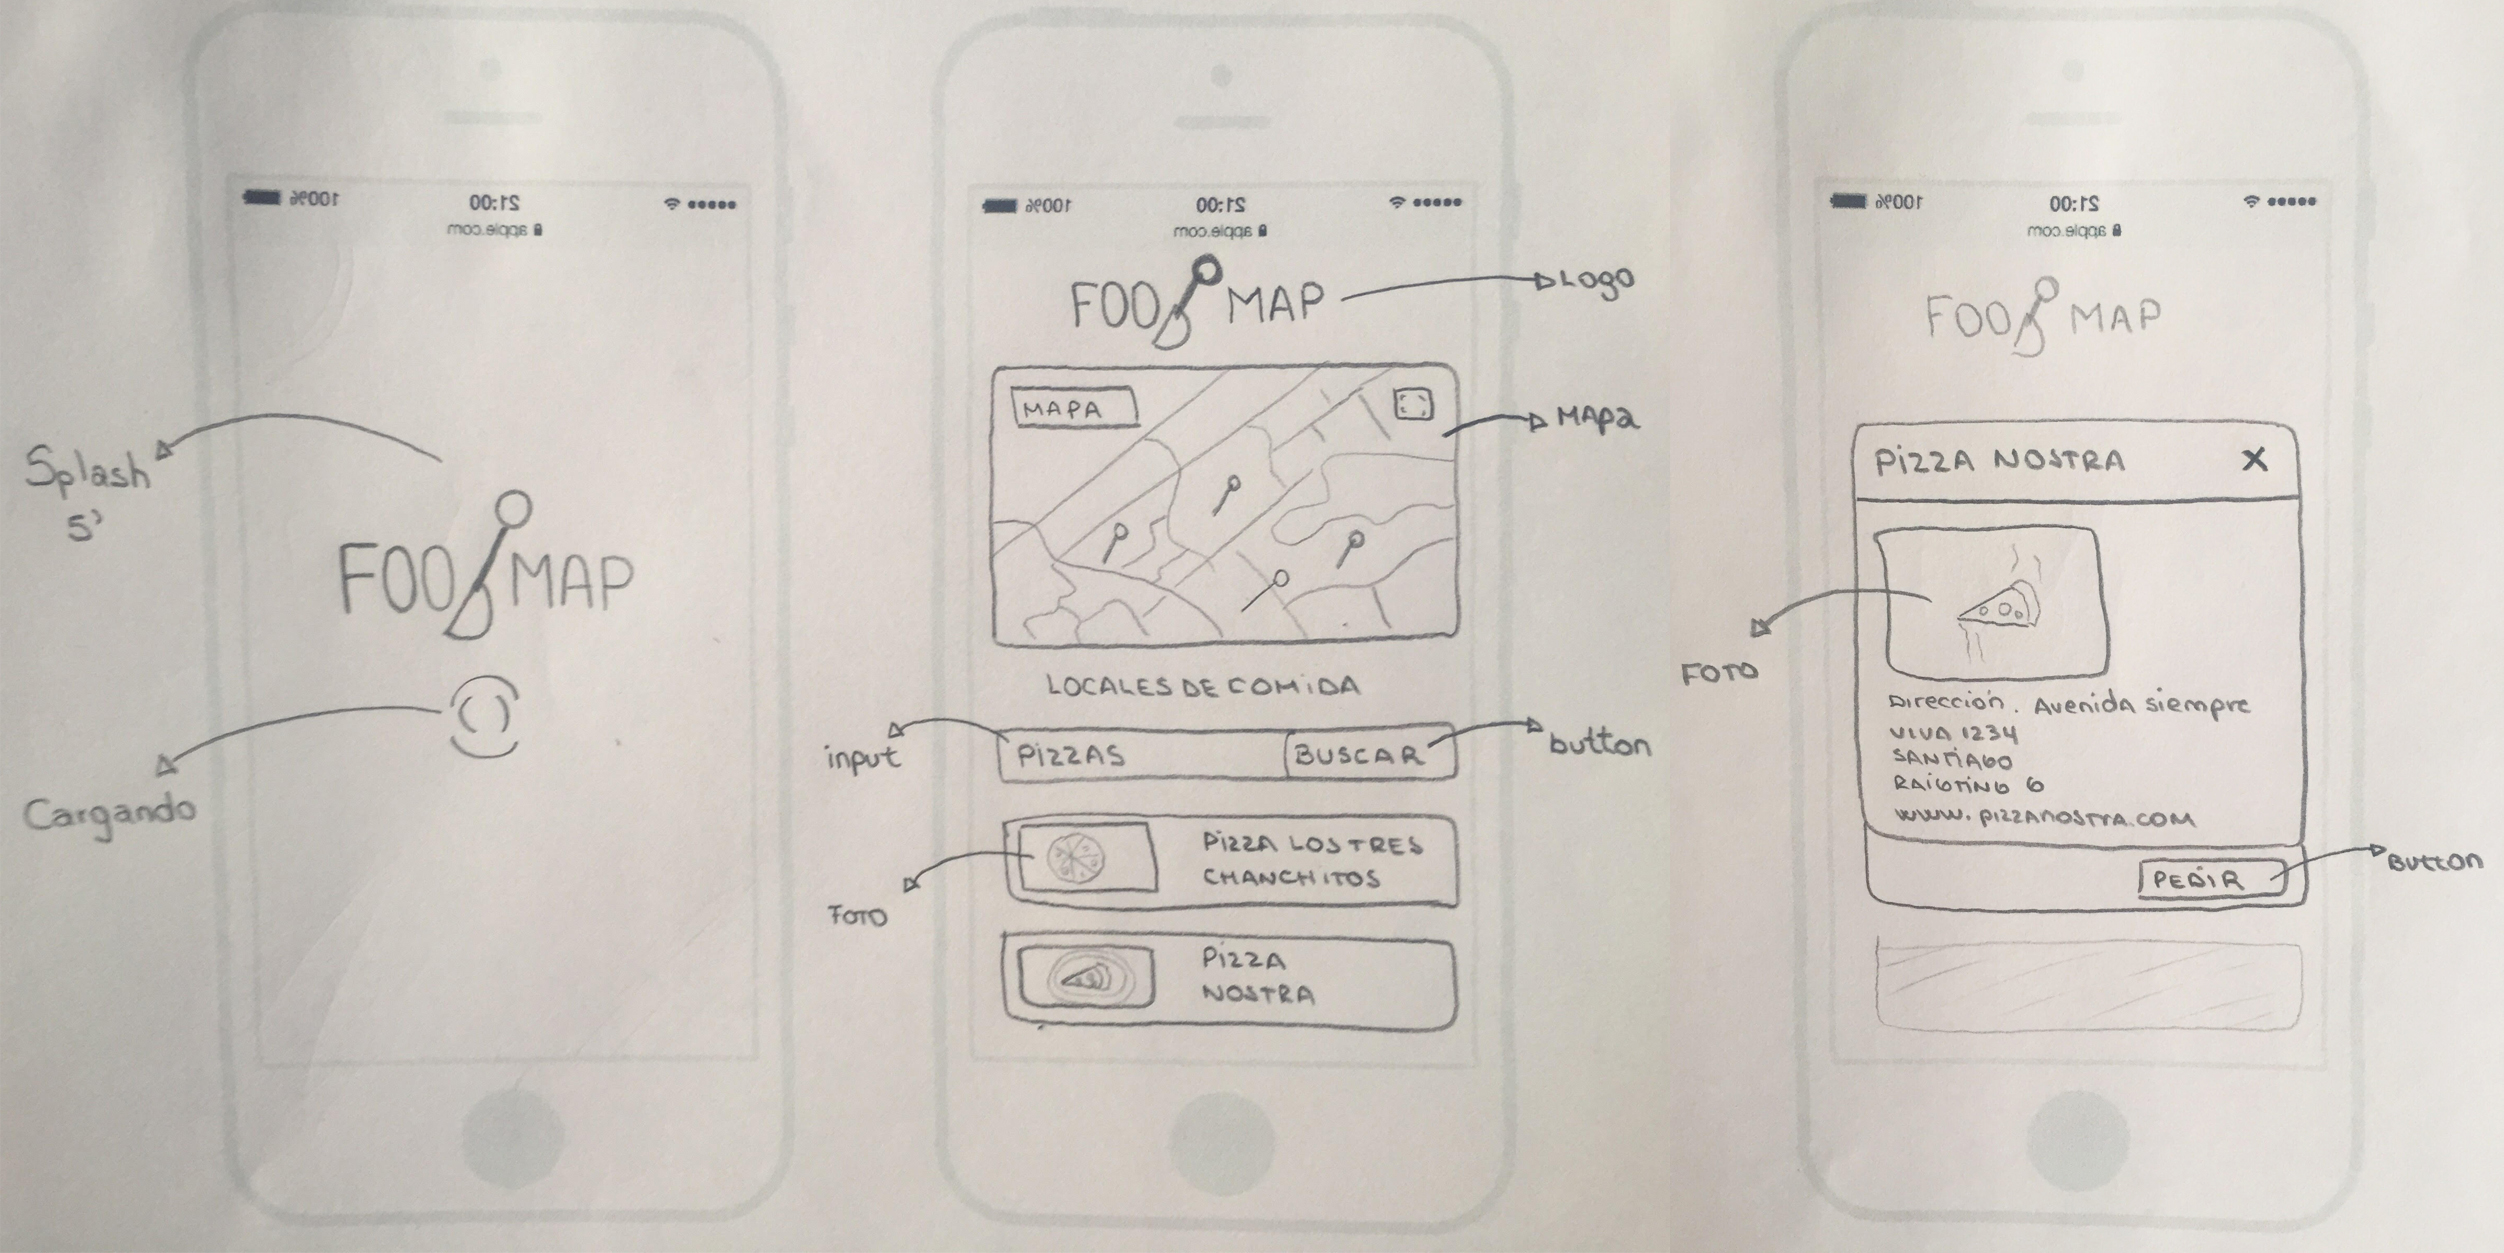 100%
21:00
apple.com
Splash
5'
FOOD MAP
Cargando
100%
21:00
apple.com
FOOD MAP
Logo
MAPA
MAPa
LOCALES DE COMiDA
input
PiZZAS
BUSCAR
button
PiZZA LOS TRES
CHANCHiTOS
FOTO
PiZZA
NOSTRA
100%
21:00
apple.com
FOOD MAP
PiZZA NOSTRA X
FOTO
Dirección. Avenida siempre
VIVA 1234
SANTiAGO
RAiGTiNG 6
www.pizzanostra.com
PEDIR
Button